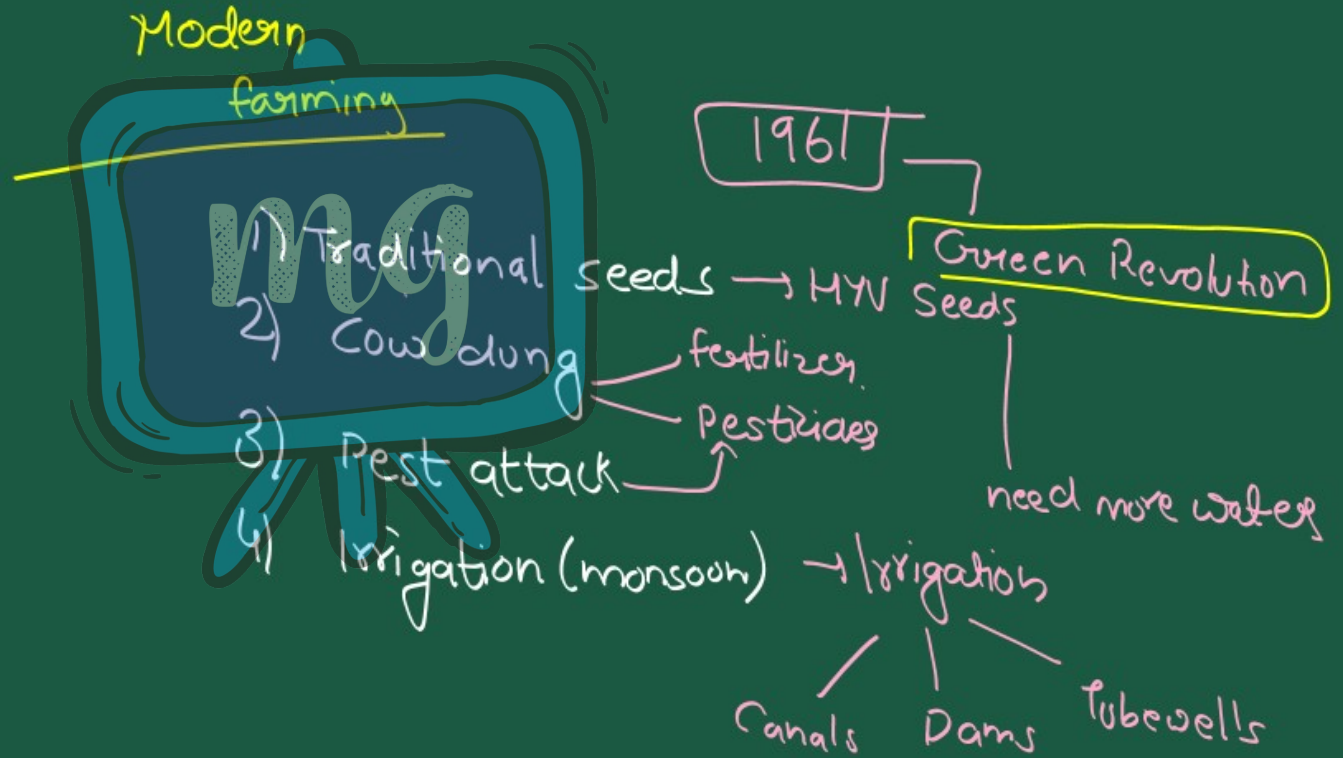 Modern
farming
1961
Green Revolution
1) Traditional seeds → HYV Seeds
2) Cow dung
fertilizer.
Pesticides
3) Pest attack
need more water
4) Irrigation (monsoon) → Irrigation
Canals Dams Tubewells
mg